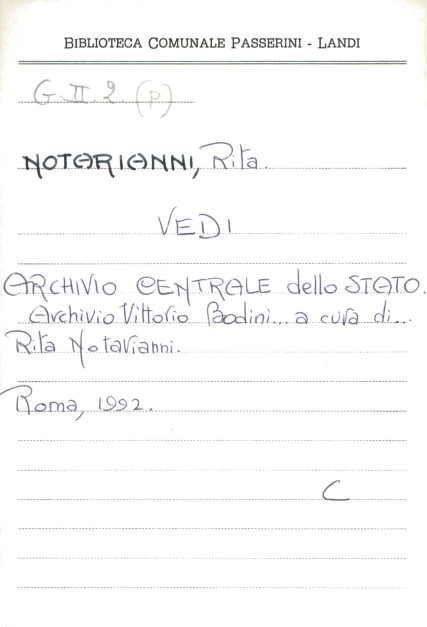 BIBLIOTECA COMUNALE PASSERINI - LANDI
G II 2 (p)
NOTARIANNI, Rita.
VEDI
ARCHIVIO CENTRALE dello STATO.
Archivio Vittorio Bodini... a cura di...
Rita Notarianni.
Roma, 1992.
C